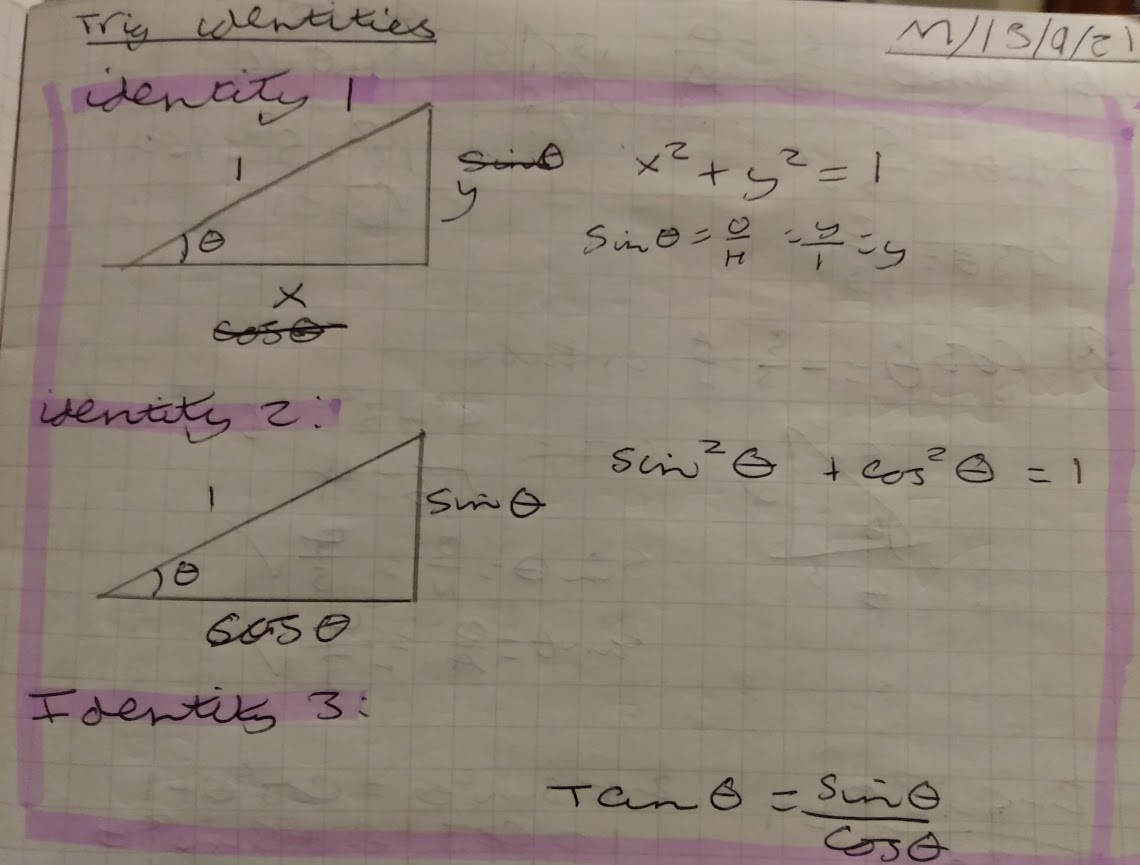 Trig identities
M/13/9/21
identity 1
1
sinθ
y
θ
x
cosθ
x² + y² = 1
sinθ = O/H = y/1 = y
identity 2:
1
sinθ
θ
cosθ
sin²θ + cos²θ = 1
Identity 3:
Tanθ = sinθ/cosθ